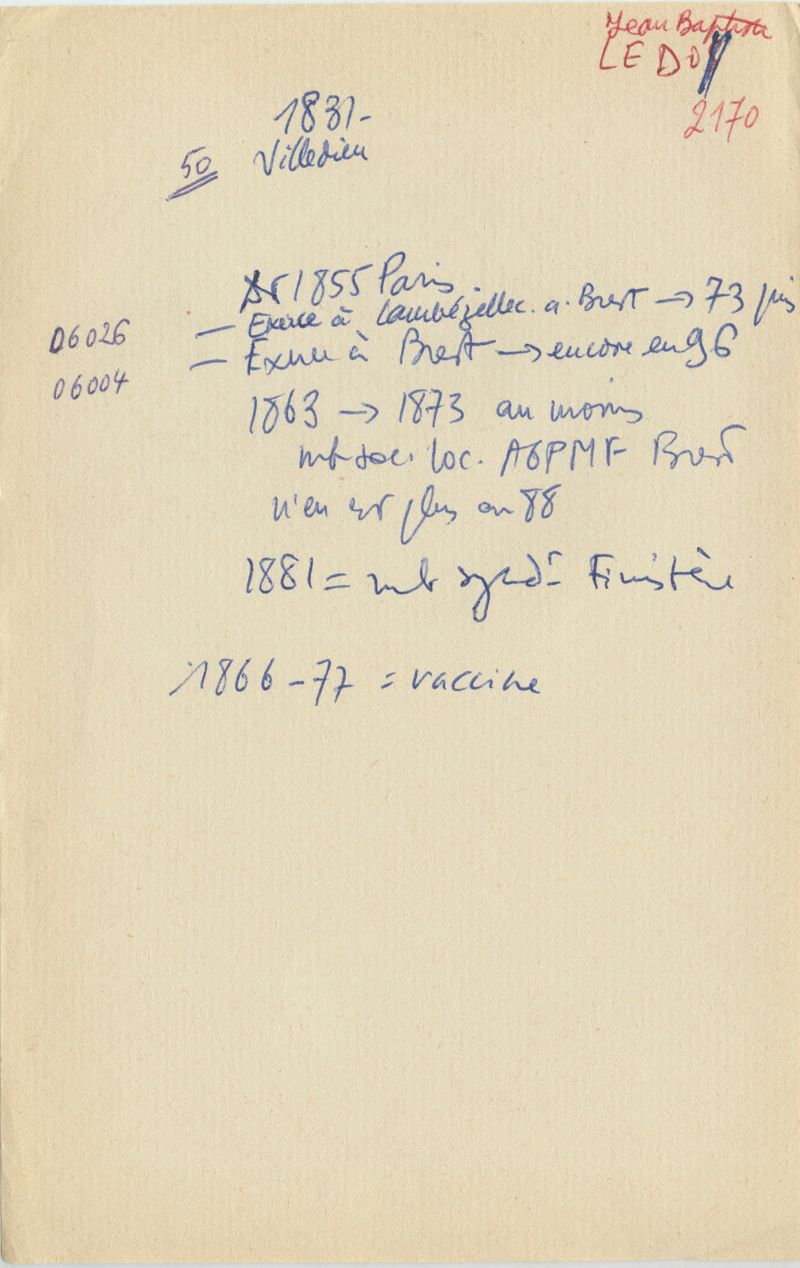 Jean Baptiste
LE DOY
2170
1831-
50 Villedieu
Dr 1855 Paris
06026 — Exerce à Lambézellec. a. Brest → 73 puis
06004 — Exerce à Brest → encore en 96
1863 → 1873 au moins
mb soc. loc. AGPMF Brest
n'en est plus en 88
1881 = mb synd^t Finistère
1866-77 = vaccine